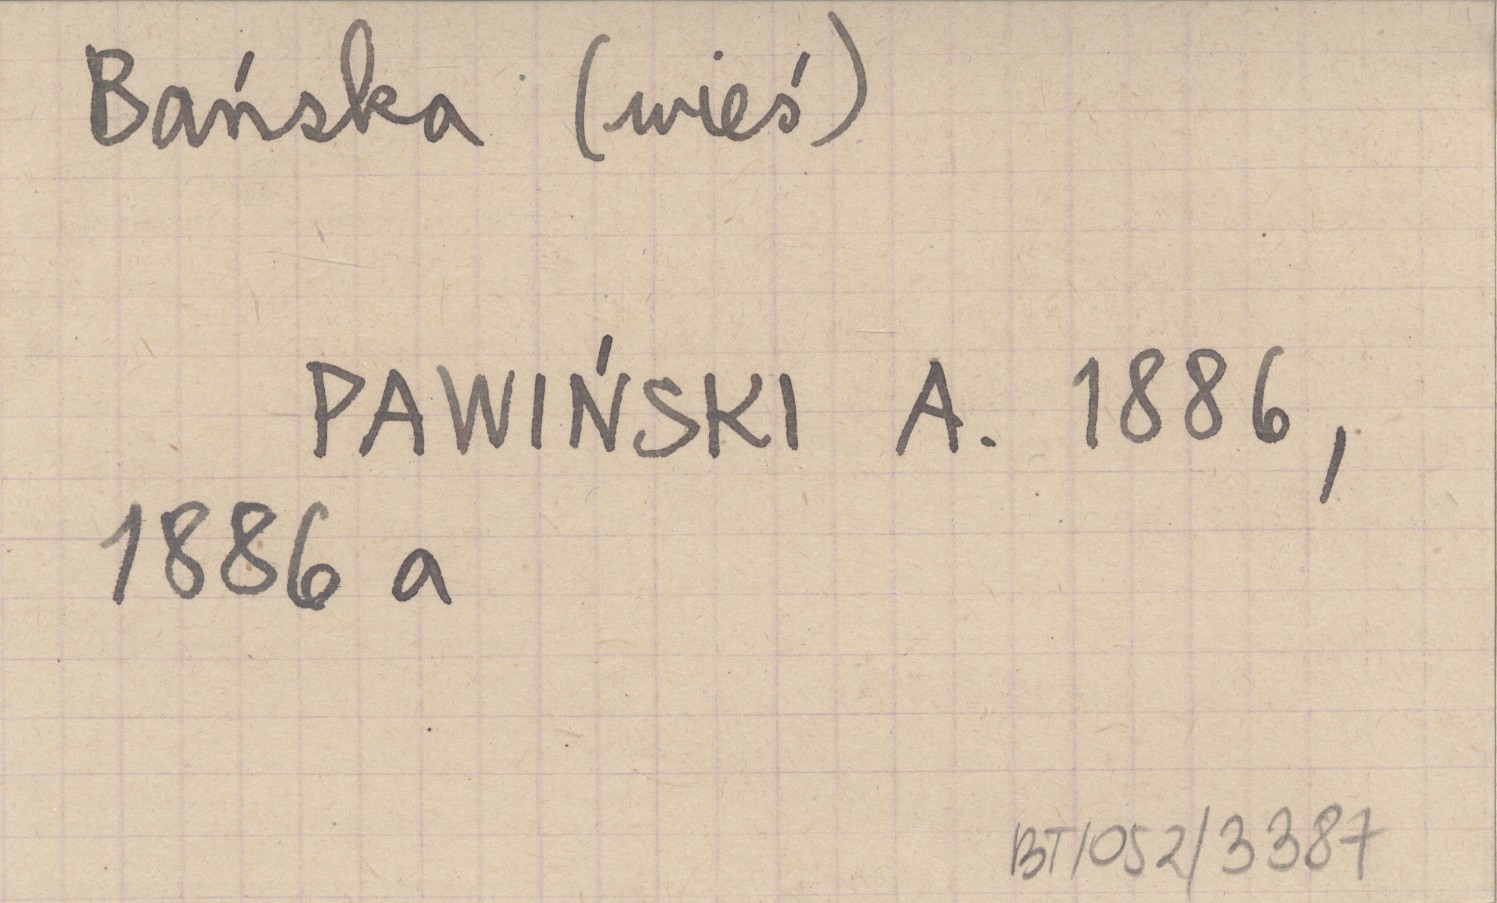 Bańska (wieś)
PAWIŃSKI A. 1886,
1886 a
BT/052/3387